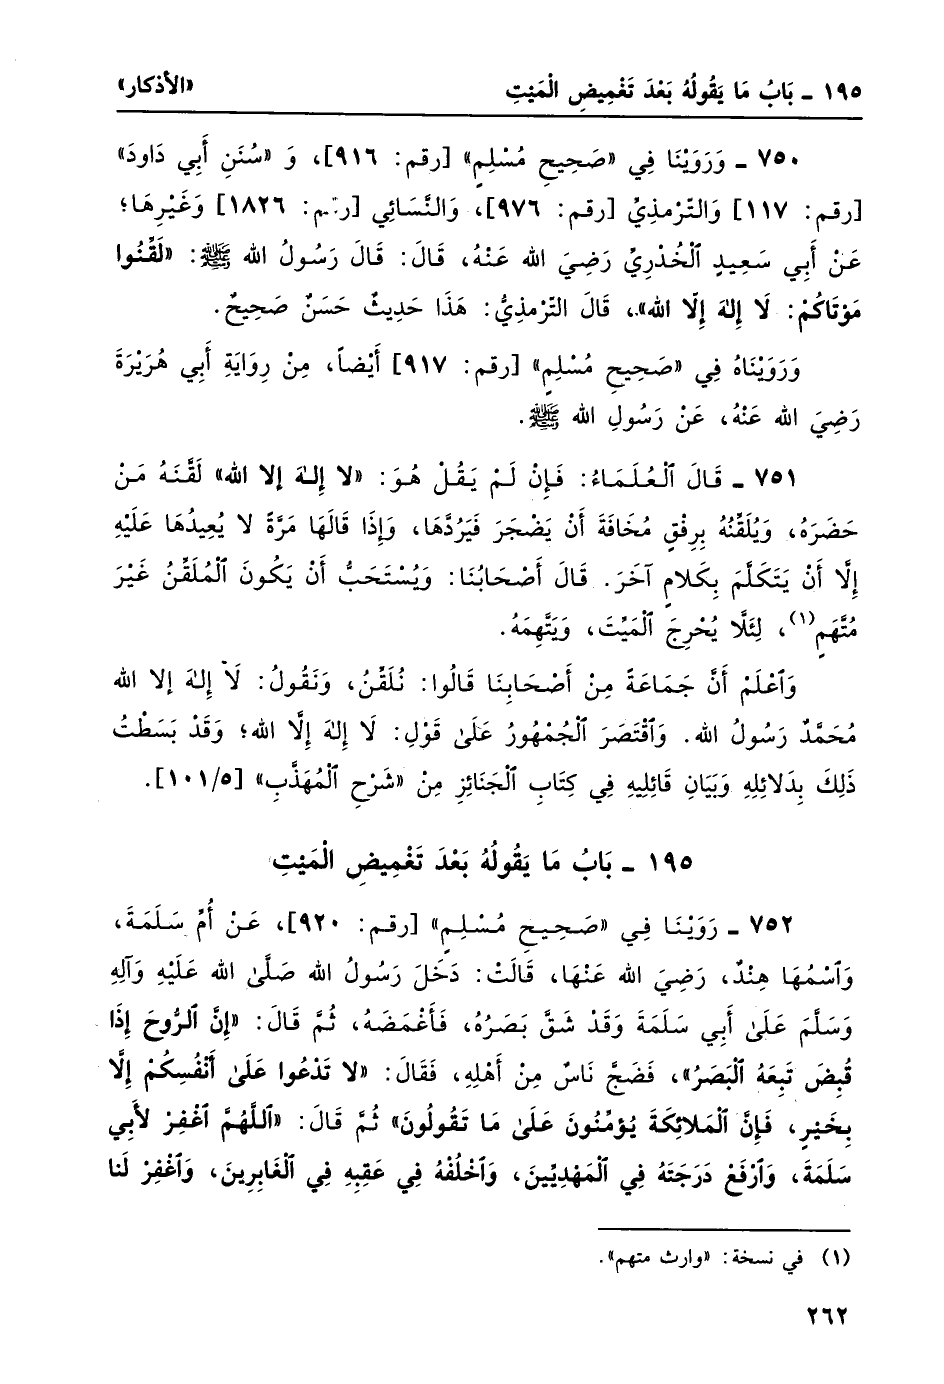 ١٩٥ ـ بَابُ مَا يَقُولُهُ بَعْدَ تَغْمِيضِ الْمَيْتِ «الأذكار»
٧٥٠ ـ وَرَوَيْنَا فِي «صَحِيحِ مُسْلِمٍ» [رقم: ٩١٦]، وَ «سُنَنِ أَبِي دَاودَ»
[رقم: ١١٧] وَالتّرْمذِيِّ [رقم: ٩٧٦]، وَالنَّسَائِي [رقم: ١٨٢٦] وَغَيْرِهَا؛
عَنْ أَبِي سَعِيدٍ ٱلْخُدْرِيِّ رَضِيَ الله عَنْهُ، قَالَ: قَالَ رَسُولُ الله ﷺ: «لَقِّنُوا
مَوْتَاكُمْ: لَا إِلـٰهَ إِلَّا الله»، قَالَ التّرْمذِيُّ: هَذَا حَدِيثٌ حَسَنٌ صَحِيحٌ.
وَرَوَيْنَاهُ فِي «صَحِيحِ مُسْلِمٍ» [رقم: ٩١٧] أَيْضاً، مِنْ رِوَايَةِ أَبِي هُرَيْرَةَ
رَضِيَ الله عَنْهُ، عَنْ رَسُولِ الله ﷺ.
٧٥١ ـ قَالَ ٱلْعُلَمَاءُ: فَإِنْ لَمْ يَقُلْ هُوَ: «لا إِلـٰهَ إلا الله» لَقَّنَهُ مَنْ
حَضَرَهُ، وَيُلَقِّنُهُ بِرِفْقٍ مُخَافَةَ أَنْ يَضْجَرَ فَيَرُدَّهَا، وَإِذَا قَالَهَا مَرَّةً لا يُعِيدُهَا عَلَيْهِ
إِلَّا أَنْ يَتَكَلَّمَ بِكَلامٍ آخَرَ. قَالَ أَصْحَابُنَا: وَيُسْتَحَبُّ أَنْ يَكُونَ ٱلْمُلَقِّنُ غَيْرَ
مُتَّهَمٍ(١)، لِئَلَّا يُحْرِجَ ٱلْمَيِّتَ، وَيَتَّهِمَهُ.
وَٱعْلَمْ أَنَّ جَمَاعَةً مِنْ أَصْحَابِنَا قَالُوا: نُلَقِّنُ، وَنَقُولُ: لَا إِلـٰهَ إلا الله
مُحَمَّدٌ رَسُولُ الله. وَٱقْتَصَرَ ٱلْجُمْهُورُ عَلَىٰ قَوْلِ: لَا إِلـٰهَ إِلَّا الله؛ وَقَدْ بَسَطْتُ
ذَلِكَ بِدَلائِلِهِ وَبَيَانِ قَائِلِيهِ فِي كِتَابِ ٱلْجَنَائِزِ مِنْ «شَرْحِ ٱلْمُهَذَّبِ» [١٠١/٥].
١٩٥ ـ بَابُ مَا يَقُولُهُ بَعْدَ تَغْمِيضِ الْمَيْتِ
٧٥٢ ـ رَوَيْنَا فِي «صَحِيحِ مُسْلِمٍ» [رقم: ٩٢٠]، عَنْ أُمِّ سَلَمَةَ،
وَٱسْمُهَا هِنْدٌ، رَضِيَ الله عَنْهَا، قَالَتْ: دَخَلَ رَسُولُ الله صَلَّىٰ الله عَلَيْهِ وَآلِهِ
وَسَلَّمَ عَلَىٰ أَبِي سَلَمَةَ وَقَدْ شَقَّ بَصَرُهُ، فَأَغْمَضَهُ، ثُمَّ قَالَ: «إِنَّ ٱلرُّوحَ إِذَا
قُبِضَ تَبِعَهُ ٱلْبَصَرُ»، فَضَجَّ نَاسٌ مِنْ أَهْلِهِ، فَقَالَ: «لا تَدْعُوا عَلَىٰ أَنْفُسِكُمْ إِلَّا
بِخَيْرٍ، فَإِنَّ ٱلْمَلائِكَةَ يُؤَمِّنُونَ عَلَىٰ مَا تَقُولُونَ» ثُمَّ قَالَ: «ٱللَّهُمَّ ٱغْفِرْ لأَبِي
سَلَمَةَ، وَٱرْفَعْ دَرَجَتَهُ فِي ٱلْمَهْدِيِّينَ، وَٱخْلُفْهُ فِي عَقِبِهِ فِي ٱلْغَابِرِينَ، وَٱغْفِرْ لَنا
(١) في نسخة: «وارث متهم».
٢٦٢